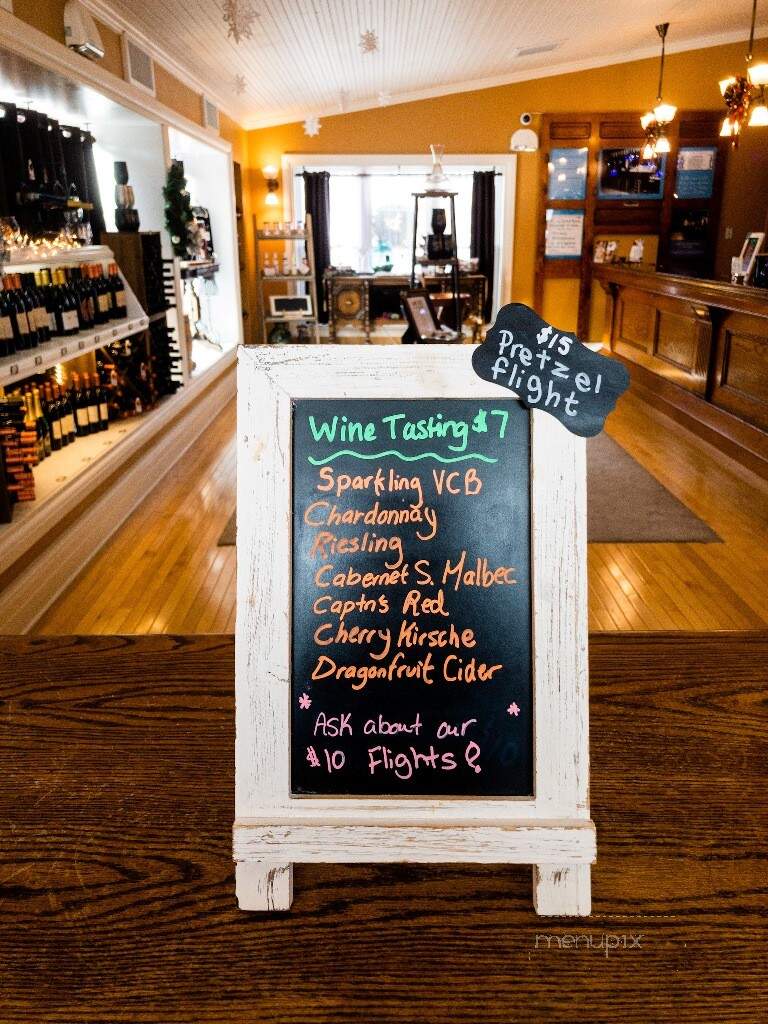 $15
Pretzel
flight
Wine Tasting $7
Sparkling VCB
Chardonnay
Riesling
Cabernet S. Malbec
Captn's Red
Cherry Kirsche
Dragonfruit Cider
Ask about our
$10 Flights!
menupix